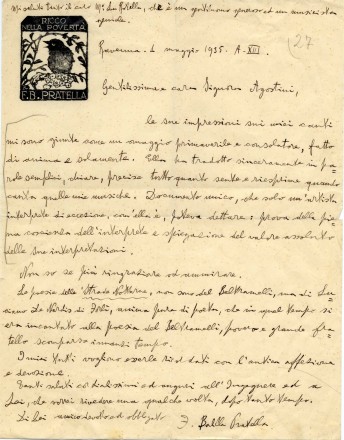 Mi saluti tanto il caro M° Lu. Pratella, che è un gentiluomo generoso ed un musicista
speciale.
RICCO
NELLA POVERTÀ
F. B. PRATELLA
(27
Ravenna. 1 maggio 1935. A. XIII.
Gentilissima e cara Signora Agostini,
le sue impressioni sui miei canti
mi sono giunte come un omaggio primaverile e consolatore, fatto
di anima e schiettezza. Ella ha tradotto sinceramente in pa-
role semplici, chiare, precise tutto quanto sente e riesprime quando
canta quelle mie musiche. Documento unico, che solo un'artista
interprete di eccezione, com'ella è, poteva dettare: prova della pie-
na coscienza dell'interprete e spiegazione del valore assoluto
delle sue interpretazioni.
Non so se più ringraziare od ammirare.
La poesia della "Strada Notturna", non sono del Beltramelli, ma di Lu-
ciano De Nardis di Forlì, anima pura di poeta, che in quel tempo si
era incantato nella poesia del Beltramelli, povero e grande fra-
tello scomparso innanzi tempo.
I miei Canti vogliono esserle ricordati con l'antica affezione
e devozione.
Tanti saluti cordialissimi ed auguri all'Ingegnere ed a
Lei, che vorrei rivedere una qualche volta, dopo tanto tempo.
Di Lei amico devoto ed obbligato
F. Balilla Pratella